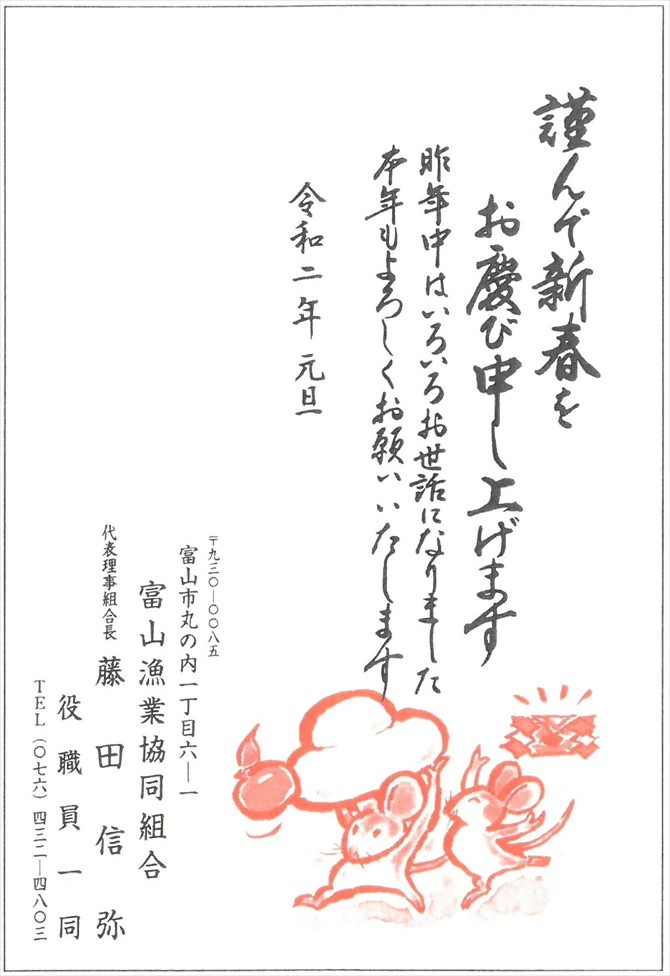 謹んで新春を
お慶び申し上げます
昨年中はいろいろお世話になりました
本年もよろしくお願いいたします
令和二年元旦
〒九三〇―〇〇八五
富山市丸の内一丁目六―一
富山漁業協同組合
代表理事組合長 藤田信弥
役職員一同
TEL(〇七六)四三二―四八〇三